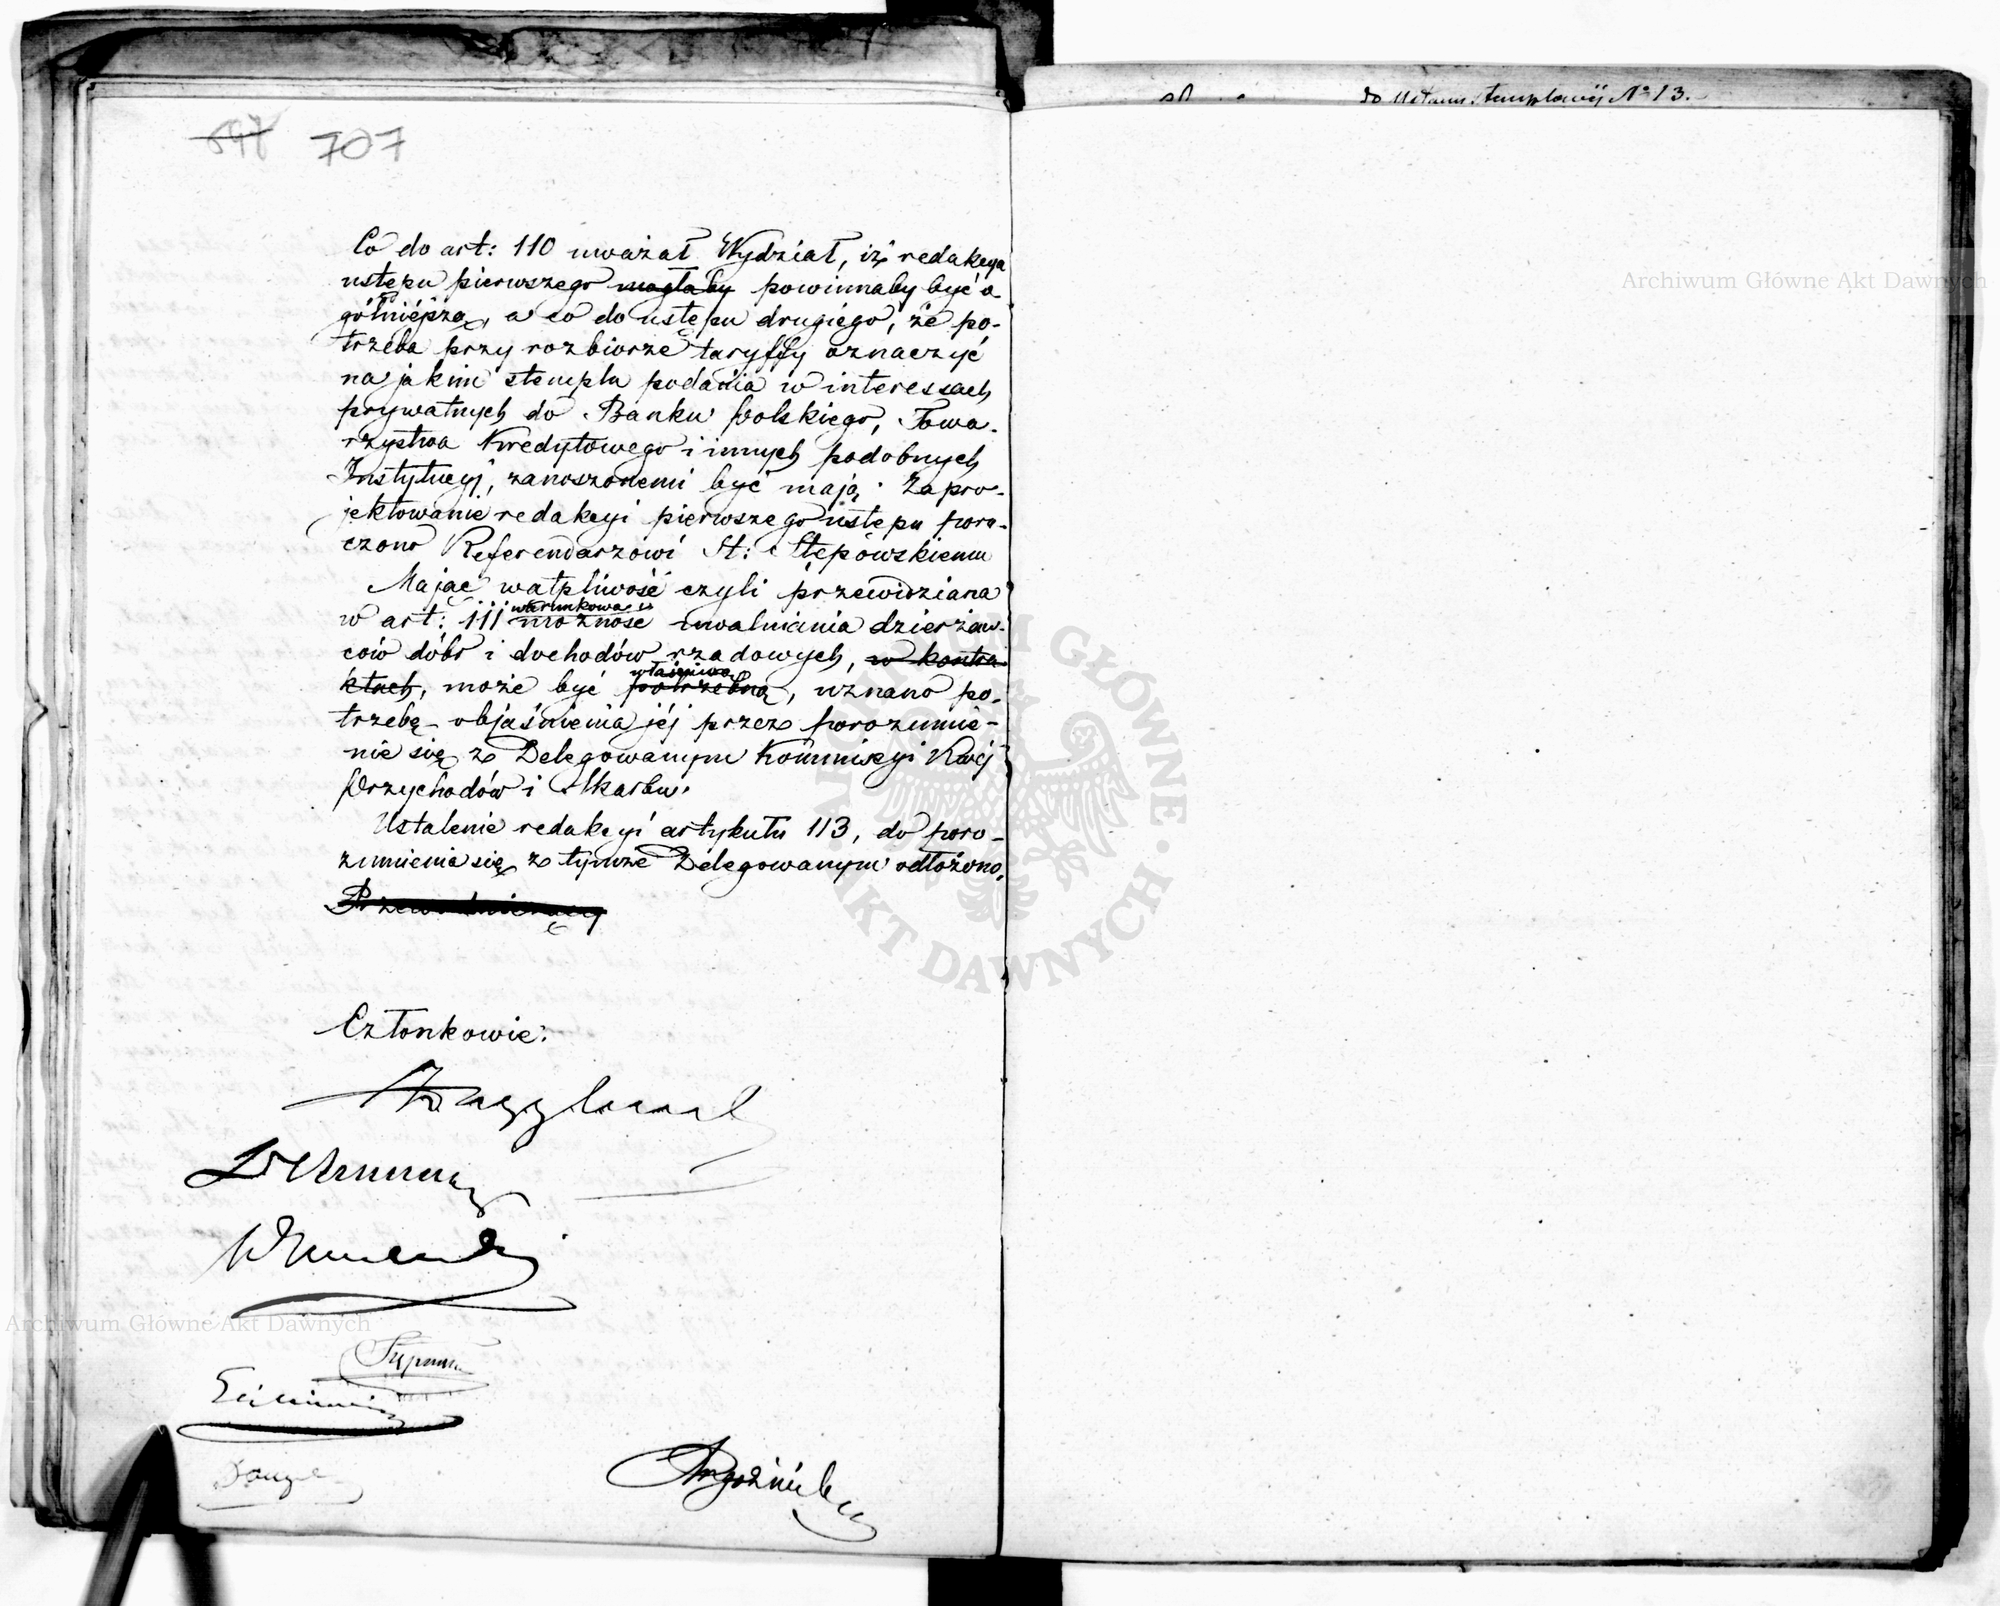 707
do Ustawy stemplowej № 13.
Co do art: 110 uważał Wydział, iż redakcya
ustępu pierwszego mogłaby powinnaby być o
gólniéjszą, a co do ustępu drugiego, że po-
trzeba przy rozbiorze taryffy oznaczyć
na jakim stemplu podania w interessach
prywatnych do Banku Polskiego, Towa-
rzystwa Kredytowego i innych podobnych
Instytucyj, zanoszonemi być mają. Zapro-
jektowanie redakcyi pierwszego ustępu poru-
czono Referendarzowi St: Stępowskiemu
Mając wątpliwość czyli przewidziana
warunkowa
w art: 111 możność uwalniania dzierżaw-
ców dóbr i dochodów rządowych, w kontra-
właściwą
ktach, może być potrzebną, uznano po-
trzebę objaśnienia jéj przez porozumie-
nie się z Delegowanym Kommissyi Rząj
Przychodów i Skarbu.
Ustalenie redakcyi artykułu 113, do poro-
zumienia się z tymże Delegowanym odłożono.
Przewodniczący
Członkowie:
Archiwum Główne Akt Dawnych
Archiwum Główne Akt Dawnych
ARCHIWUM GŁÓWNE · AKT DAWNYCH · W